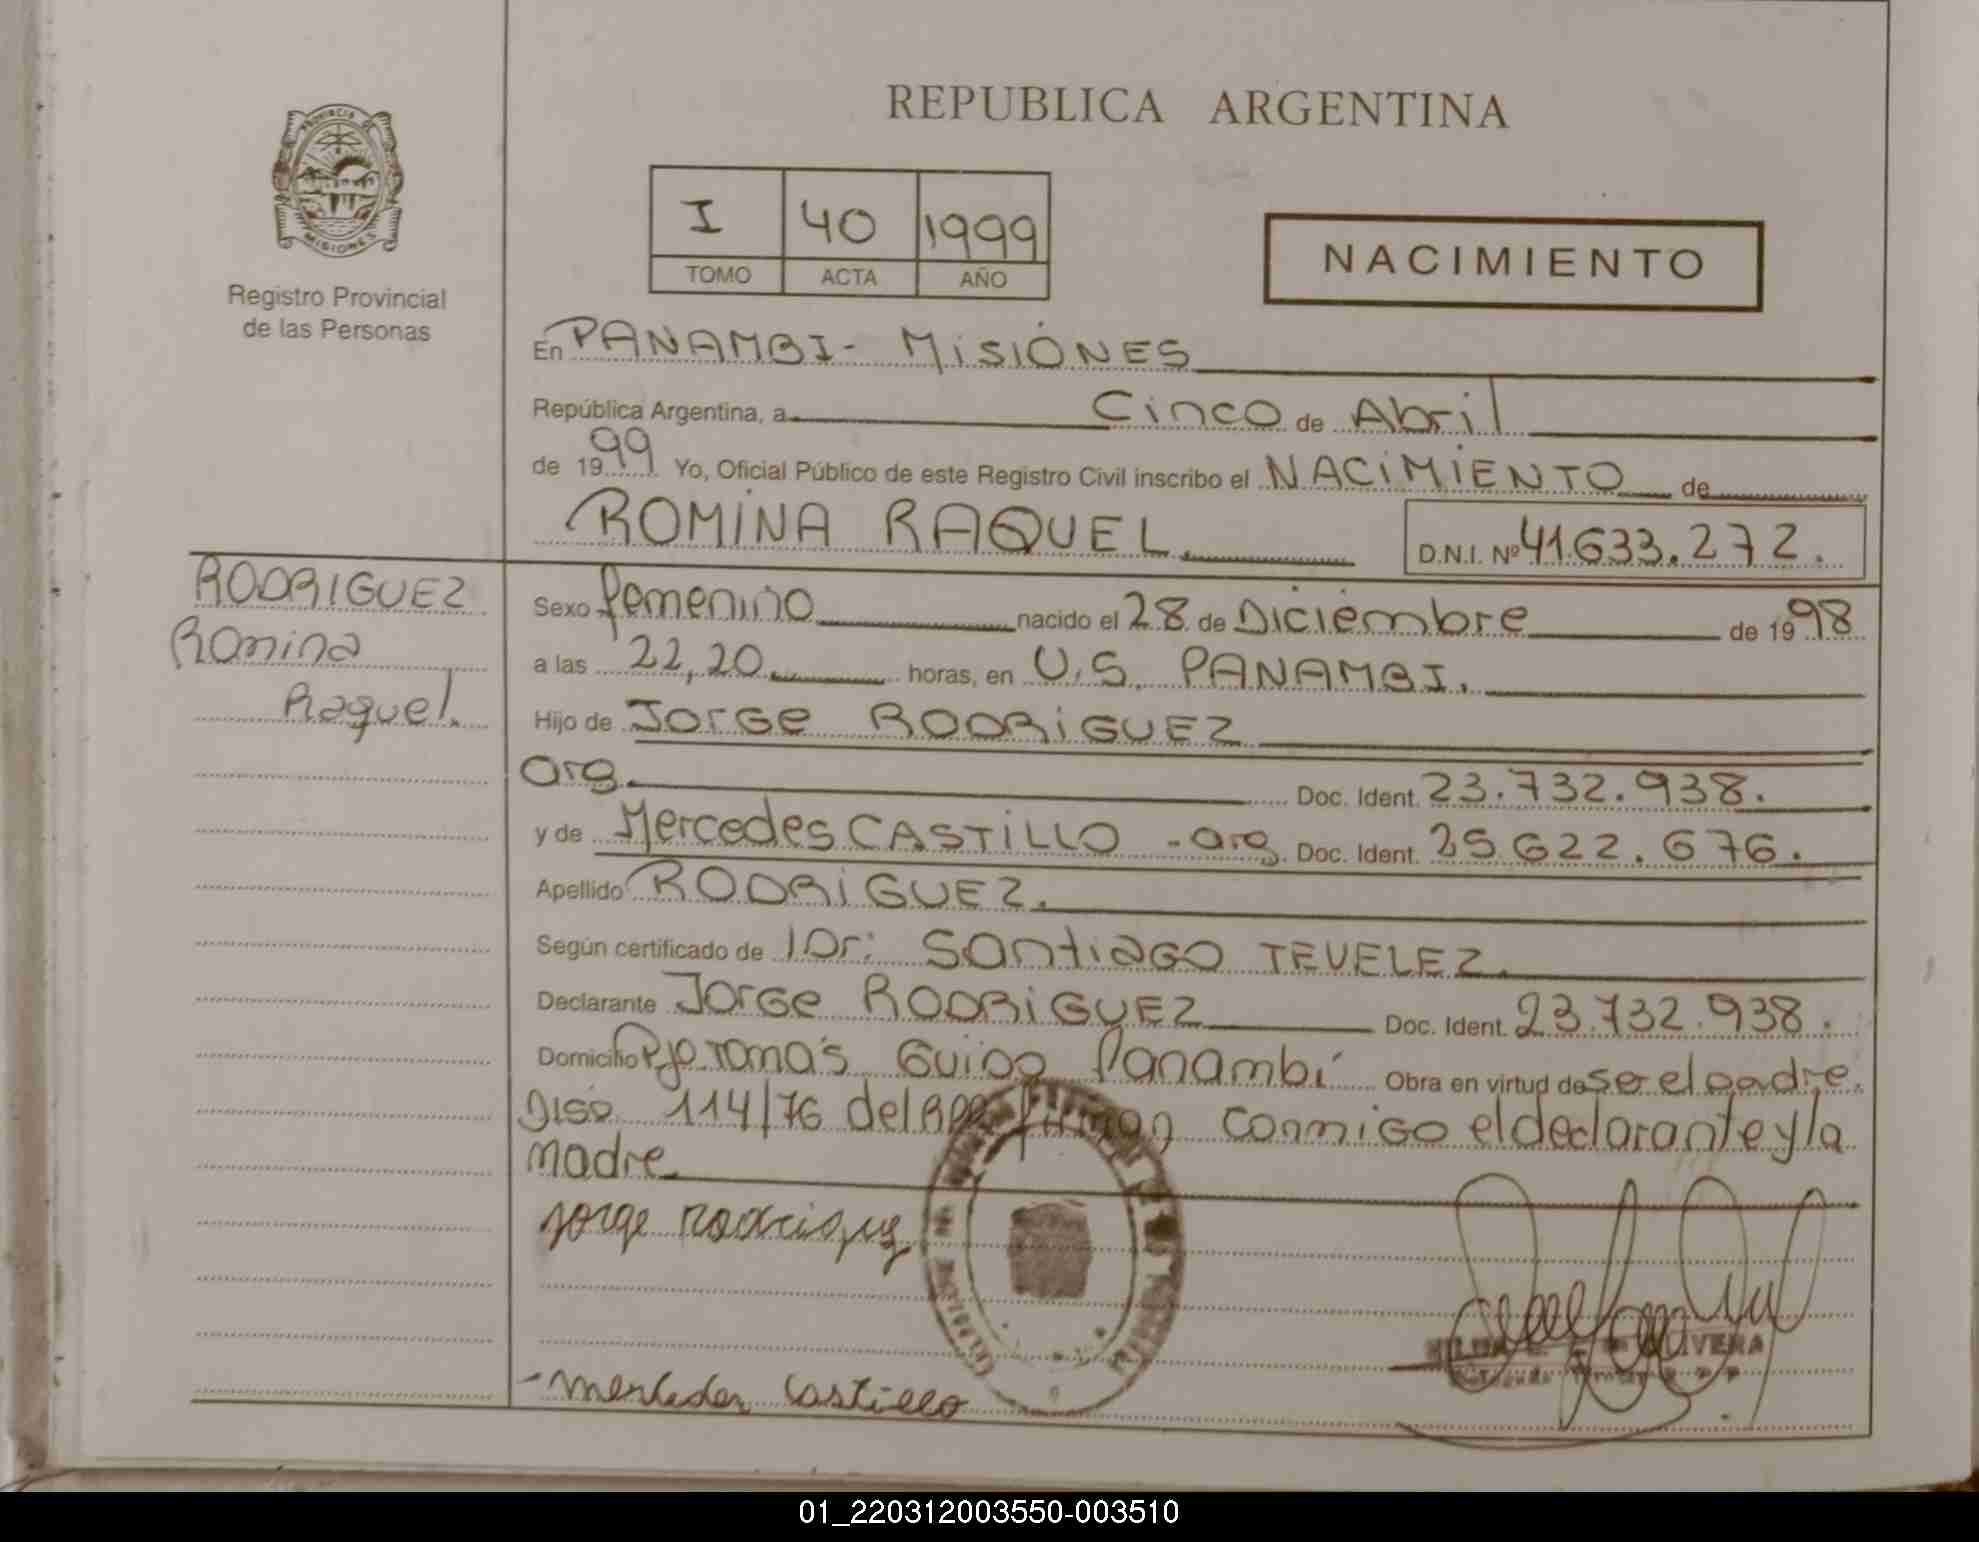 REPUBLICA ARGENTINA
PROVINCIA DE
MISIONES
Registro Provincial
de las Personas
I 40 1999
TOMO ACTA AÑO
NACIMIENTO
En PANAMBI - MISIONES
República Argentina, a Cinco de Abril
de 1999 Yo, Oficial Público de este Registro Civil inscribo el NACIMIENTO de
ROMINA RAQUEL D.N.I. Nº 41.633.272.
RODRIGUEZ
Romina
Raquel.
Sexo femenino nacido el 28 de Diciembre de 1998
a las 22,20 horas, en U.S. PANAMBI.
Hijo de Jorge RODRIGUEZ
arg. Doc. Ident. 23.732.938.
y de Mercedes CASTILLO - arg. Doc. Ident. 25.622.676.
Apellido RODRIGUEZ.
Según certificado de Dr: Santiago TEVELEZ.
Declarante Jorge RODRIGUEZ Doc. Ident. 23.732.938.
Domicilio Pje. Tomás Guido Panambí Obra en virtud de ser el padre.
Disp. 114/76 del RPP firman conmigo el declarante y la
madre
Jorge Rodriguez
OLIVERA
- Mercedes Castillo
01_220312003550-003510